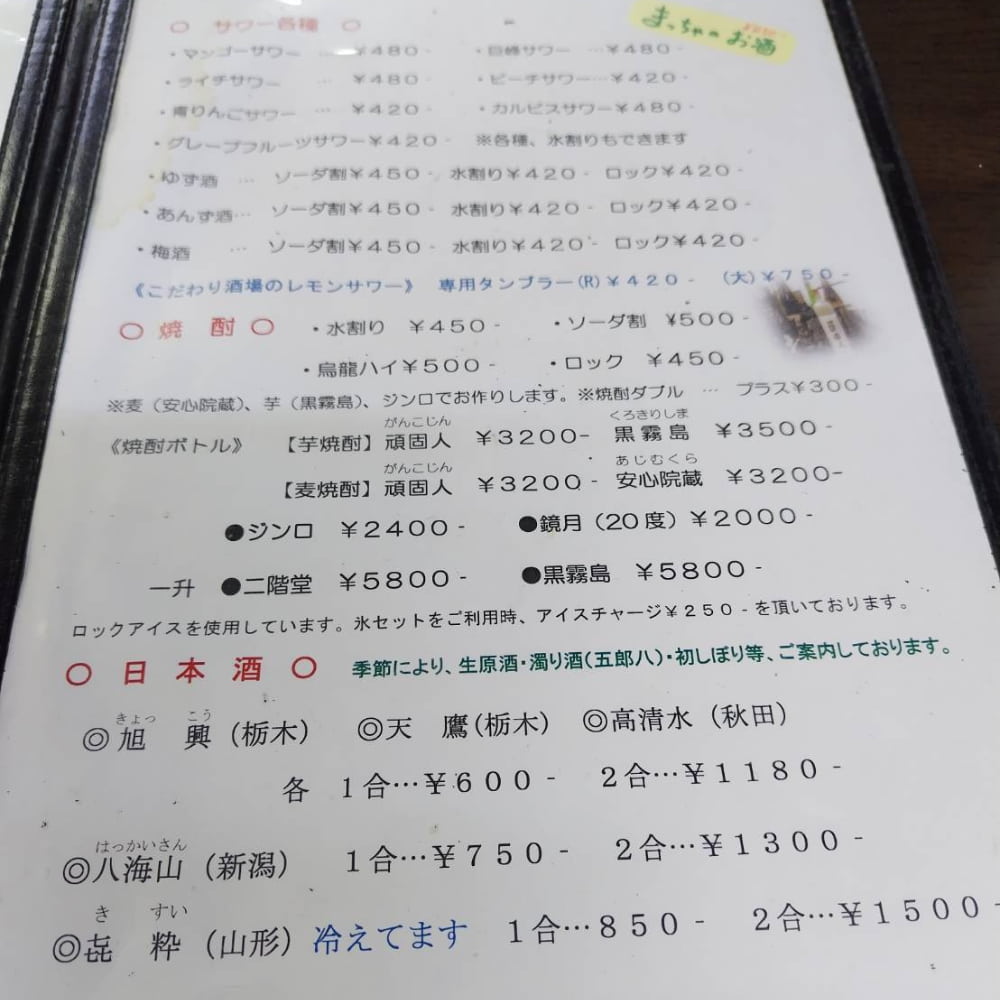 ○ サワー各種 ○
まっちゃのお酒
・マンゴーサワー … ¥480-　・巨峰サワー …¥480-
・ライチサワー … ¥480-　・ピーチサワー…¥420-
・青りんごサワー … ¥420-　・カルピスサワー¥480-
・グレープフルーツサワー¥420-　※各種、氷割りもできます
・ゆず酒 … ソーダ割¥450-　水割り¥420-　ロック¥420-
・あんず酒… ソーダ割¥450-　水割り¥420-　ロック¥420-
・梅酒 … ソーダ割¥450-　水割り¥420-　ロック¥420-
《こだわり酒場のレモンサワー》　専用タンブラー(R)¥420-　(大)¥750-
○ 焼 酎 ○　・水割り ¥450-　・ソーダ割 ¥500-
・烏龍ハイ¥500-　・ロック ¥450-
※麦(安心院蔵)、芋(黒霧島)、ジンロでお作りします。※焼酎ダブル … プラス¥300-
がんこじん　くろきりしま
《焼酎ボトル》　【芋焼酎】頑固人 ¥3200-　黒霧島 ¥3500-
がんこじん　あじむくら
【麦焼酎】頑固人 ¥3200-　安心院蔵 ¥3200-
●ジンロ ¥2400-　●鏡月(20度)¥2000-
一升 ●二階堂 ¥5800-　●黒霧島 ¥5800-
ロックアイスを使用しています。氷セットをご利用時、アイスチャージ¥250-を頂いております。
○ 日 本 酒 ○　季節により、生原酒・濁り酒(五郎八)・初しぼり等、ご案内しております。
きょっ　こう
◎旭　興(栃木)　◎天　鷹(栃木)　◎高清水(秋田)
各　1合…¥600-　2合…¥1180-
はっかいさん
◎八海山(新潟)　1合…¥750-　2合…¥1300-
き　すい
◎㐂　粋(山形)冷えてます　1合…850-　2合…¥1500-